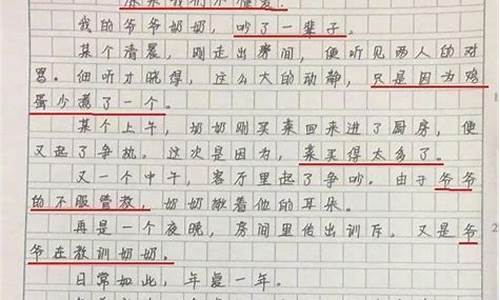 我们不
我的爷爷奶奶，吵了一辈子。
某个清晨，刚走出房间，便听见两人的对
骂。细听才晓得，这么大的动静，只是因为鸡
蛋少煮了一个。
某个上午，奶奶刚买菜回来进了厨房，便
又起了争执。这次是因为，菜买得太多了。
又一个中午，客厅里起了争吵。由于爷爷
的不服管教，奶奶揪着他的耳朵。
再是一个夜晚，房间里传出训斥。又是爷
爷在教训奶奶。
日常如此，年复一年。